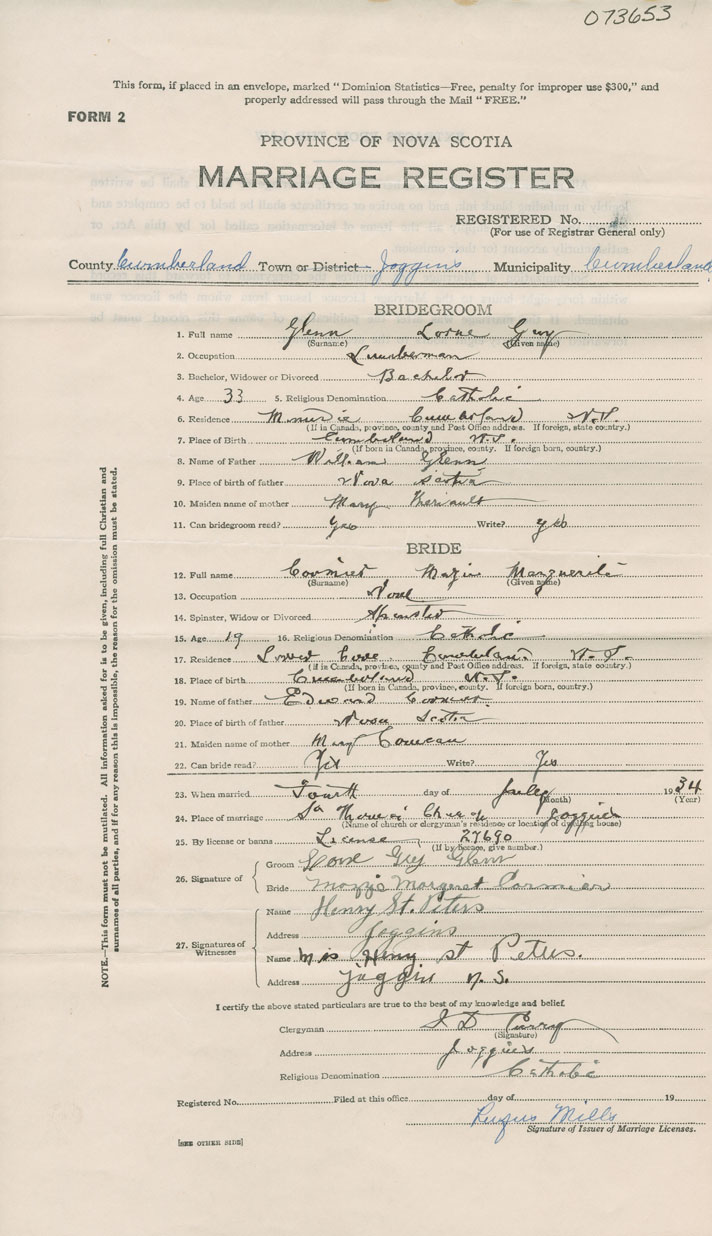 073653
This form, if placed in an envelope, marked "Dominion Statistics—Free, penalty for improper use $300," and
properly addressed will pass through the Mail "FREE."
FORM 2
PROVINCE OF NOVA SCOTIA
MARRIAGE REGISTER
REGISTERED No.
(For use of Registrar General only)
County Cumberland Town or District Joggins Municipality Cumberland
BRIDEGROOM
1. Full name Glenn Lorne Guy
(Surname) (Given name)
2. Occupation Lumberman
3. Bachelor, Widower or Divorced Bachelor
4. Age 33 5. Religious Denomination Catholic
6. Residence Minudie Cumberland N.S.
(If in Canada, province, county and Post Office address. If foreign, state country.)
7. Place of Birth Cumberland N.S.
(If born in Canada, province, county. If foreign born, country.)
8. Name of Father William Glenn
9. Place of birth of father Nova Scotia
10. Maiden name of mother Mary Theriault
11. Can bridegroom read? Yes Write? yes
BRIDE
12. Full name Cormier Marguerite
(Surname) (Given name)
13. Occupation None
14. Spinster, Widow or Divorced Spinster
15. Age 19 16. Religious Denomination Catholic
17. Residence Lower Cove Cumberland N.S.
(If in Canada, province, county and Post Office address. If foreign, state country.)
18. Place of birth Cumberland N.S.
(If born in Canada, province, county. If foreign born, country.)
19. Name of father Edward Cormier
20. Place of birth of father Nova Scotia
21. Maiden name of mother Mary Comeau
22. Can bride read? Yes Write? Yes
23. When married Fourth day of July 1934
(Month) (Year)
24. Place of marriage Church Joggins
(Name of church or clergyman's residence or location of dwelling house)
25. By license or banns License 27690
(If by license, give number.)
26. Signature of
Groom Guy Glenn
Bride Margaret Cormier
27. Signatures of Witnesses
Name Henry St. Peters
Address Joggins
Name Mrs Henry St Peters.
Address Joggins N.S.
I certify the above stated particulars are true to the best of my knowledge and belief.
Clergyman Curry
(Signature)
Address Joggins
Religious Denomination Catholic
Registered No. Filed at this office day of 19
Rufus Mills
Signature of Issuer of Marriage Licenses.
[SEE OTHER SIDE]
NOTE.—This form must not be mutilated. All information asked for is to be given, including full Christian and
surnames of all parties, and if for any reason this is impossible, the reason for the omission must be stated.